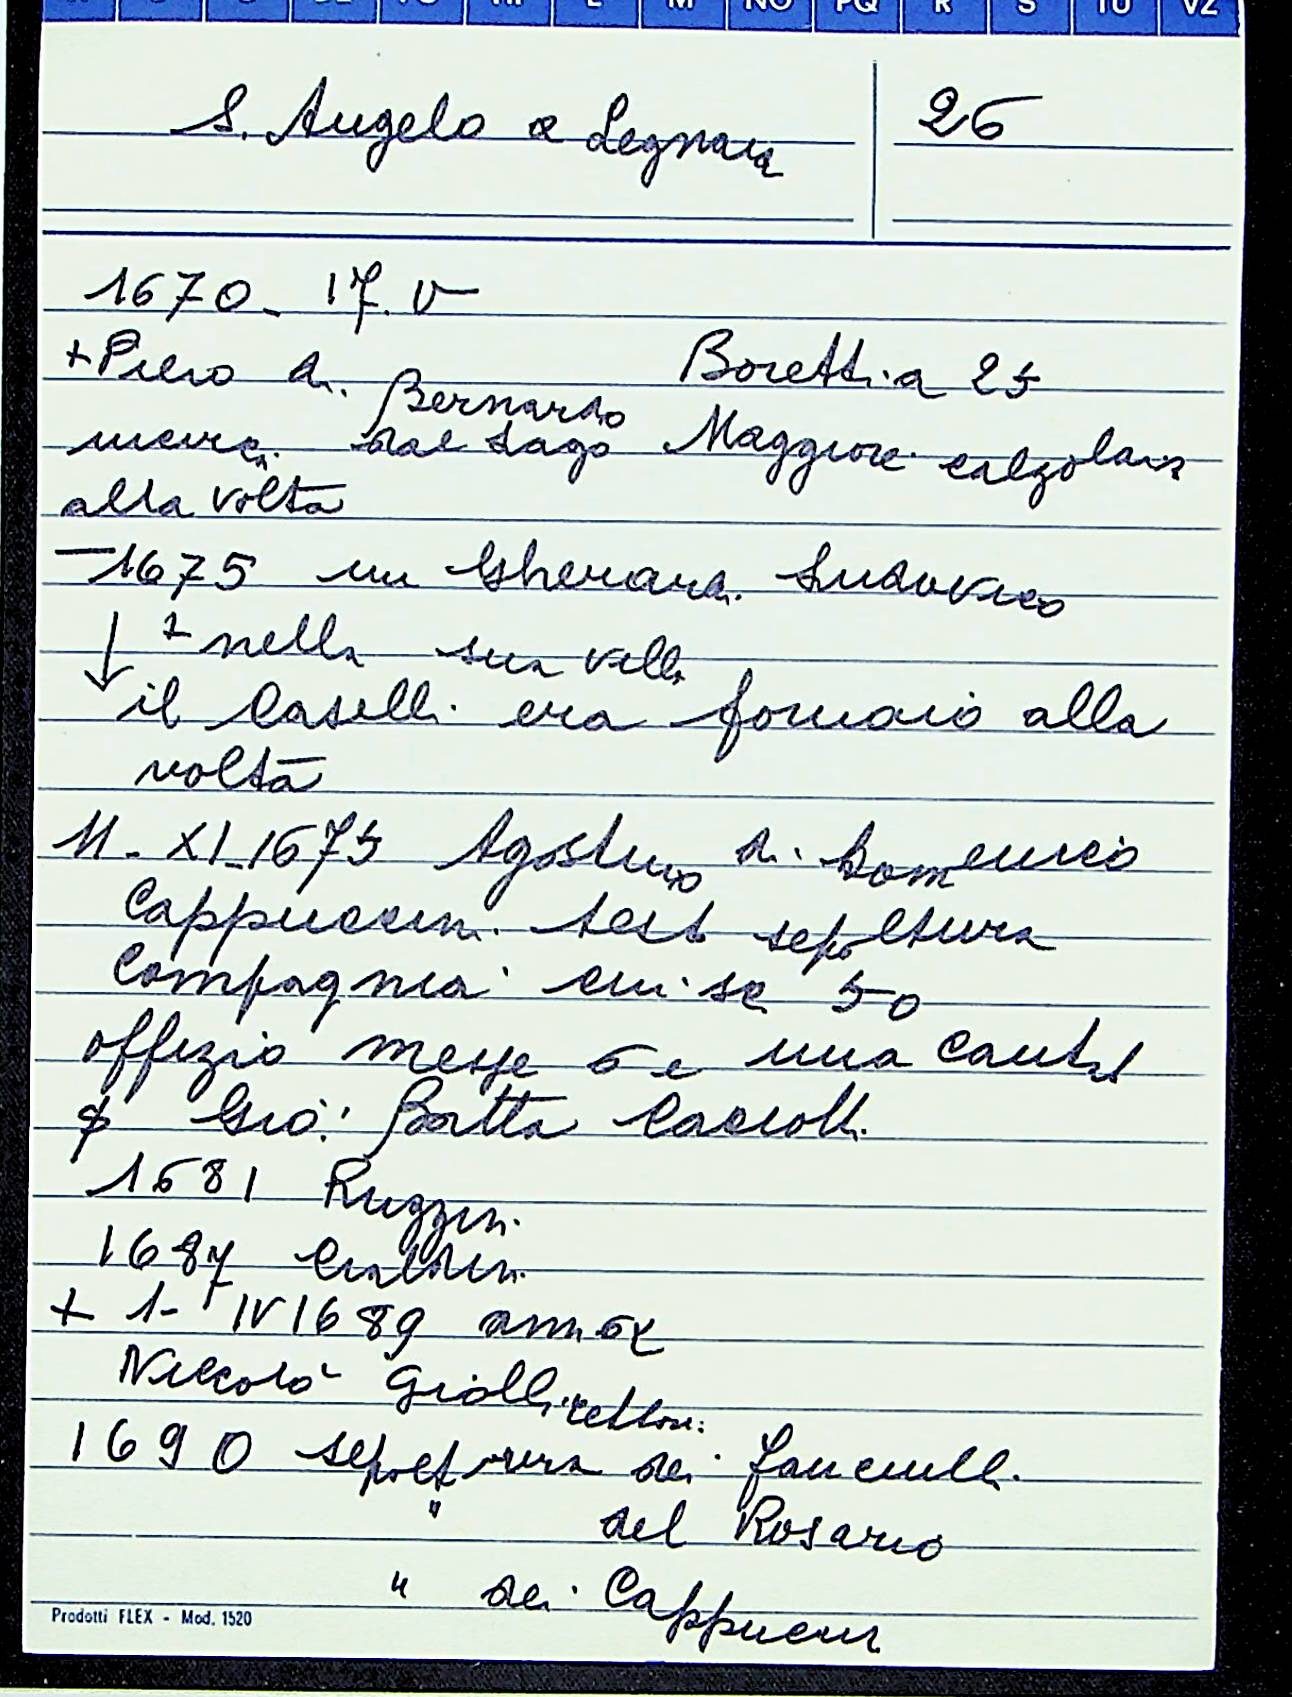 S. Angelo a Legnaia
26
1670 - 17. V
+ Piero di Bernardo Boretti. a 25
dal Lago Maggiore calzolaio
alla volta
- 1675 un Gherardi Ludovico
↓ + nella sua villa
il Caselli era fornaio alla
volta
11 - XI - 1675 Agostino di Domenico
Cappuccini. test sepoltura
Compagnia: 50
offizio messe 6 e una cantat
Gio: Batta Caccioli
1681 Ruggin.
1687
+ 1 - IV 1689 anni
Niccolò Giolli rettore:
1690 sepoltura dei fanciulli.
" del Rosario
" dei Cappuccini
Prodotti FLEX - Mod. 1520